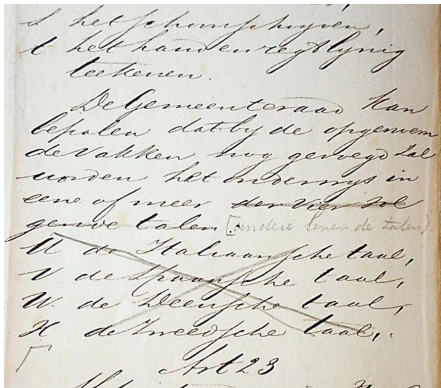 s het schoonschrijven,
t het hand en regtlynig
teekenen.
De Gemeenteraad kan
bepalen dat by de opgenoem
de vakken nog gevoegd zal
worden het onderwys in
eene of meer der vier vol
gende talen [andere levende talen]
U de Italiaansche taal,
V de Spaansche taal,
W de Deensche taal,
X de Zweedsche taal,.
Art 23